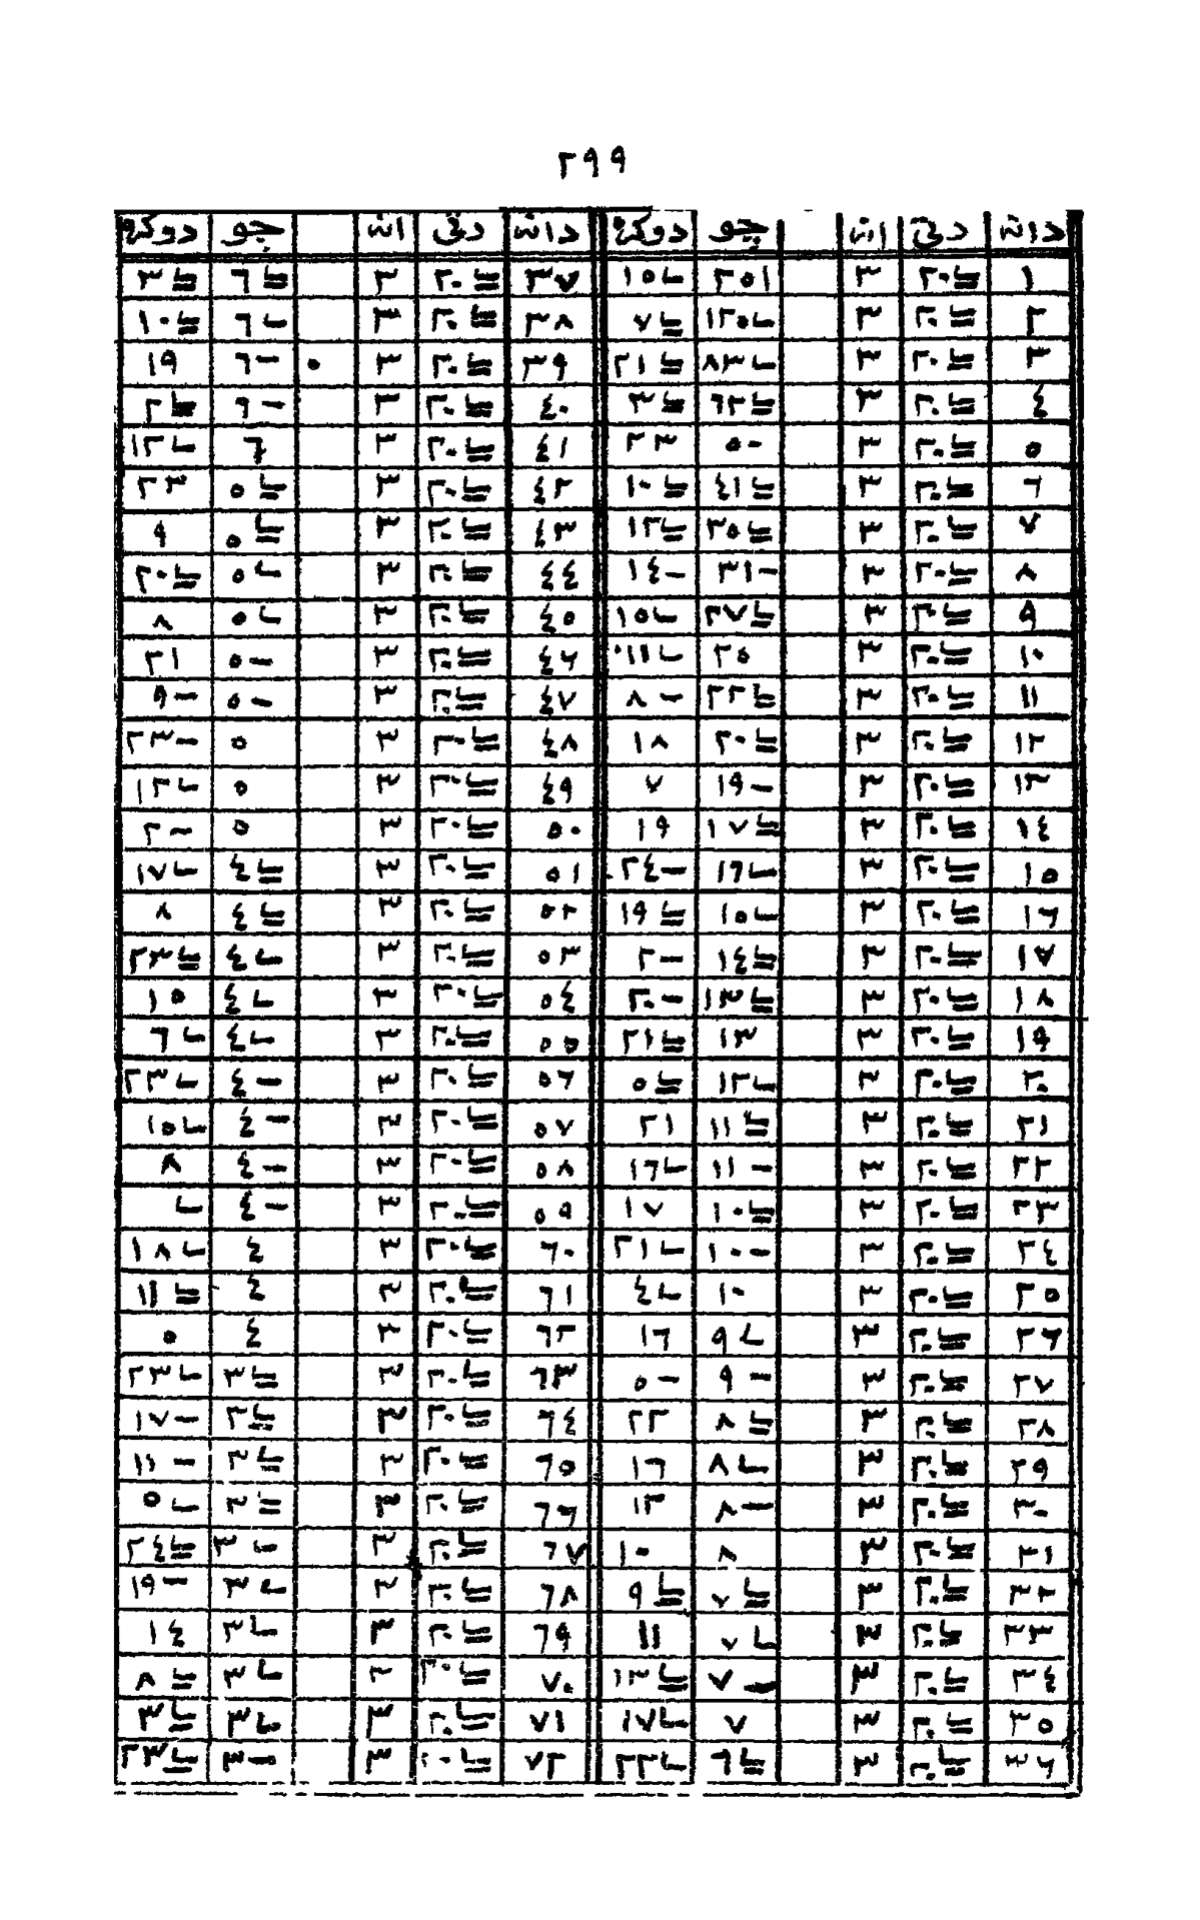 ٢٩٩
دانه دني انه چو دوكره دانه دني انه چو دوكره
١ ٢٠ ٣ ٢٥١ ١٥ ٣٧ ٢٠ ٣ ٦ ٣
٢ ٢٠ ٣ ١٢٥ ٧ ٣٨ ٢٠ ٣ ٦ ١٠
٣ ٢٠ ٣ ٨٣ ٢١ ٣٩ ٢٠ ٣ ٦- ١٩
٤ ٢٠ ٣ ٦٢ ٣ ٤٠ ٢٠ ٣ ٦- ٢
٥ ٢٠ ٣ ٥٠- ٢٣ ٤١ ٢٠ ٣ ٦ ١٢
٦ ٢٠ ٣ ٤١ ١٠ ٤٢ ٢٠ ٣ ٥ ٢٣
٧ ٢٠ ٣ ٣٥ ١٢ ٤٣ ٢٠ ٣ ٥ ٩
٨ ٢٠ ٣ ٣١- ١٤- ٤٤ ٢٠ ٣ ٥ ٢٠
٩ ٢٠ ٣ ٢٧ ١٥ ٤٥ ٢٠ ٣ ٥ ٨
١٠ ٢٠ ٣ ٢٥ ١١ ٤٦ ٢٠ ٣ ٥- ٢١
١١ ٢٠ ٣ ٢٢ ٨- ٤٧ ٢٠ ٣ ٥- ٩-
١٢ ٢٠ ٣ ٢٠ ١٨ ٤٨ ٢٠ ٣ ٥ ٢٣-
١٣ ٢٠ ٣ ١٩- ٧ ٤٩ ٢٠ ٣ ٥ ١٢
١٤ ٢٠ ٣ ١٧ ١٩ ٥٠ ٢٠ ٣ ٥ ٢-
١٥ ٢٠ ٣ ١٦ ٢٤- ٥١ ٢٠ ٣ ٤ ١٧
١٦ ٢٠ ٣ ١٥ ١٩ ٥٢ ٢٠ ٣ ٤ ٨
١٧ ٢٠ ٣ ١٤ ٢- ٥٣ ٢٠ ٣ ٤ ٢٣
١٨ ٢٠ ٣ ١٣ ٢٠- ٥٤ ٢٠ ٣ ٤ ١٥
١٩ ٢٠ ٣ ١٣ ٢١ ٥٥ ٢٠ ٣ ٤ ٦
٢٠ ٢٠ ٣ ١٢ ٥ ٥٦ ٢٠ ٣ ٤- ٢٣
٢١ ٢٠ ٣ ١١ ٢١ ٥٧ ٢٠ ٣ ٤- ١٥
٢٢ ٢٠ ٣ ١١- ١٦ ٥٨ ٢٠ ٣ ٤- ٨
٢٣ ٢٠ ٣ ١٠ ١٧ ٥٩ ٢٠ ٣ ٤-
٢٤ ٢٠ ٣ ١٠- ٢١ ٦٠ ٢٠ ٣ ٤ ١٨
٢٥ ٢٠ ٣ ١٠ ٤ ٦١ ٢٠ ٣ ٤ ١١
٢٦ ٢٠ ٣ ٩ ١٦ ٦٢ ٢٠ ٣ ٤ ٥
٢٧ ٢٠ ٣ ٩- ٥- ٦٣ ٢٠ ٣ ٣ ٢٣
٢٨ ٢٠ ٣ ٨ ٢٢ ٦٤ ٢٠ ٣ ٣ ١٧-
٢٩ ٢٠ ٣ ٨ ١٦ ٦٥ ٢٠ ٣ ٣ ١١-
٣٠ ٢٠ ٣ ٨- ١٣ ٦٦ ٢٠ ٣ ٣ ٥
٣١ ٢٠ ٣ ٨ ١٠ ٦٧ ٢٠ ٣ ٣ ٢٤
٣٢ ٢٠ ٣ ٧ ٩ ٦٨ ٢٠ ٣ ٣ ١٩-
٣٣ ٢٠ ٣ ٧ ١١ ٦٩ ٢٠ ٣ ٣ ١٤
٣٤ ٢٠ ٣ ٧- ١٢ ٧٠ ٢٠ ٣ ٣ ٨
٣٥ ٢٠ ٣ ٧ ١٧ ٧١ ٢٠ ٣ ٣ ٣
٣٦ ٢٠ ٣ ٦ ٢٢ ٧٢ ٢٠ ٣ ٣- ٢٣